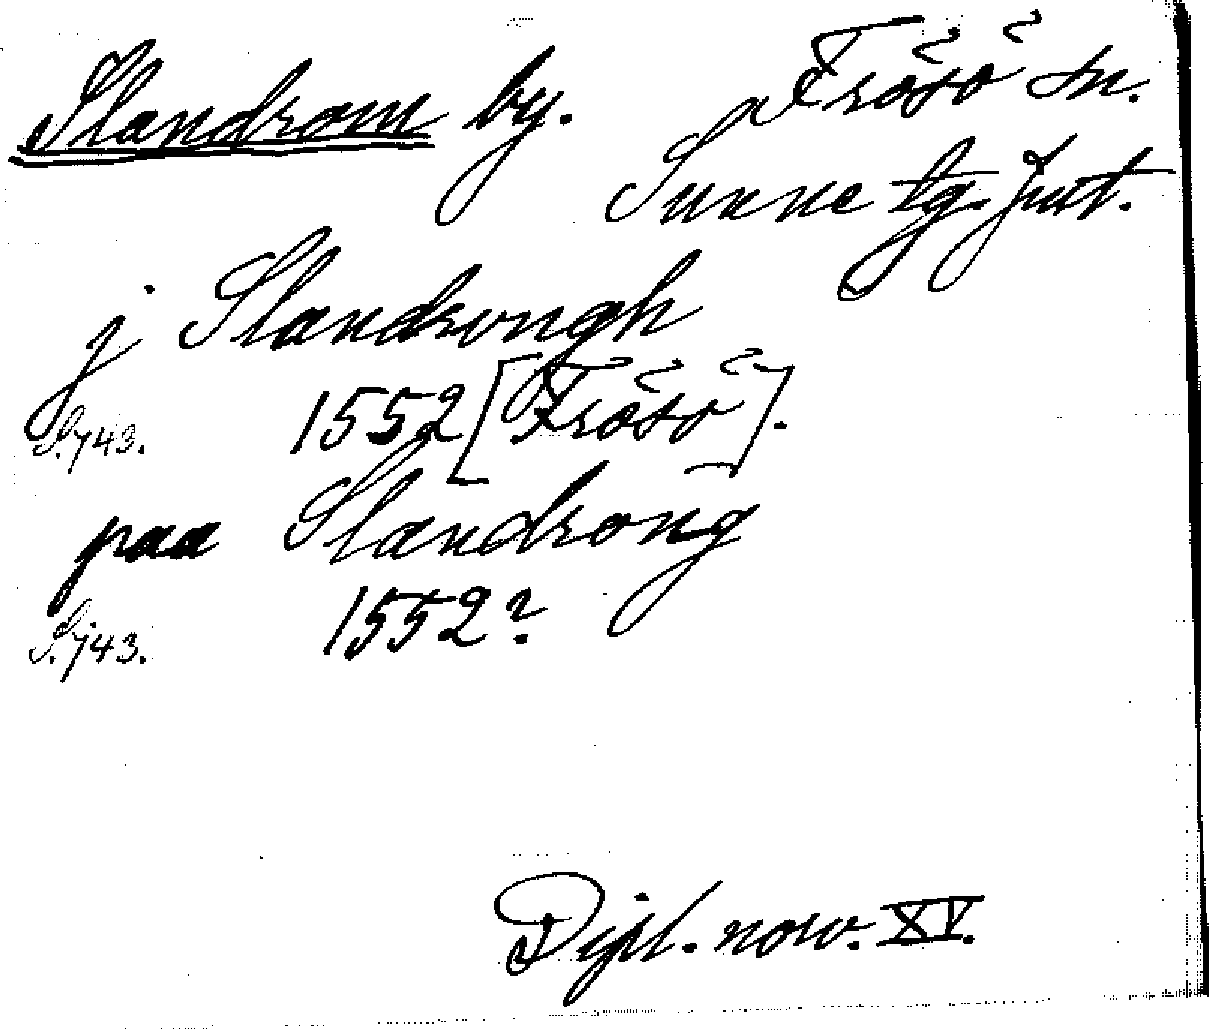 Slandrom by. Frösö sn.
Sunne tg. Jmt.
j Slandrongh
S. 143. 1552 [Frösö].
paa Slandrong
S. 143. 1552?
Dipl. norv. XV.